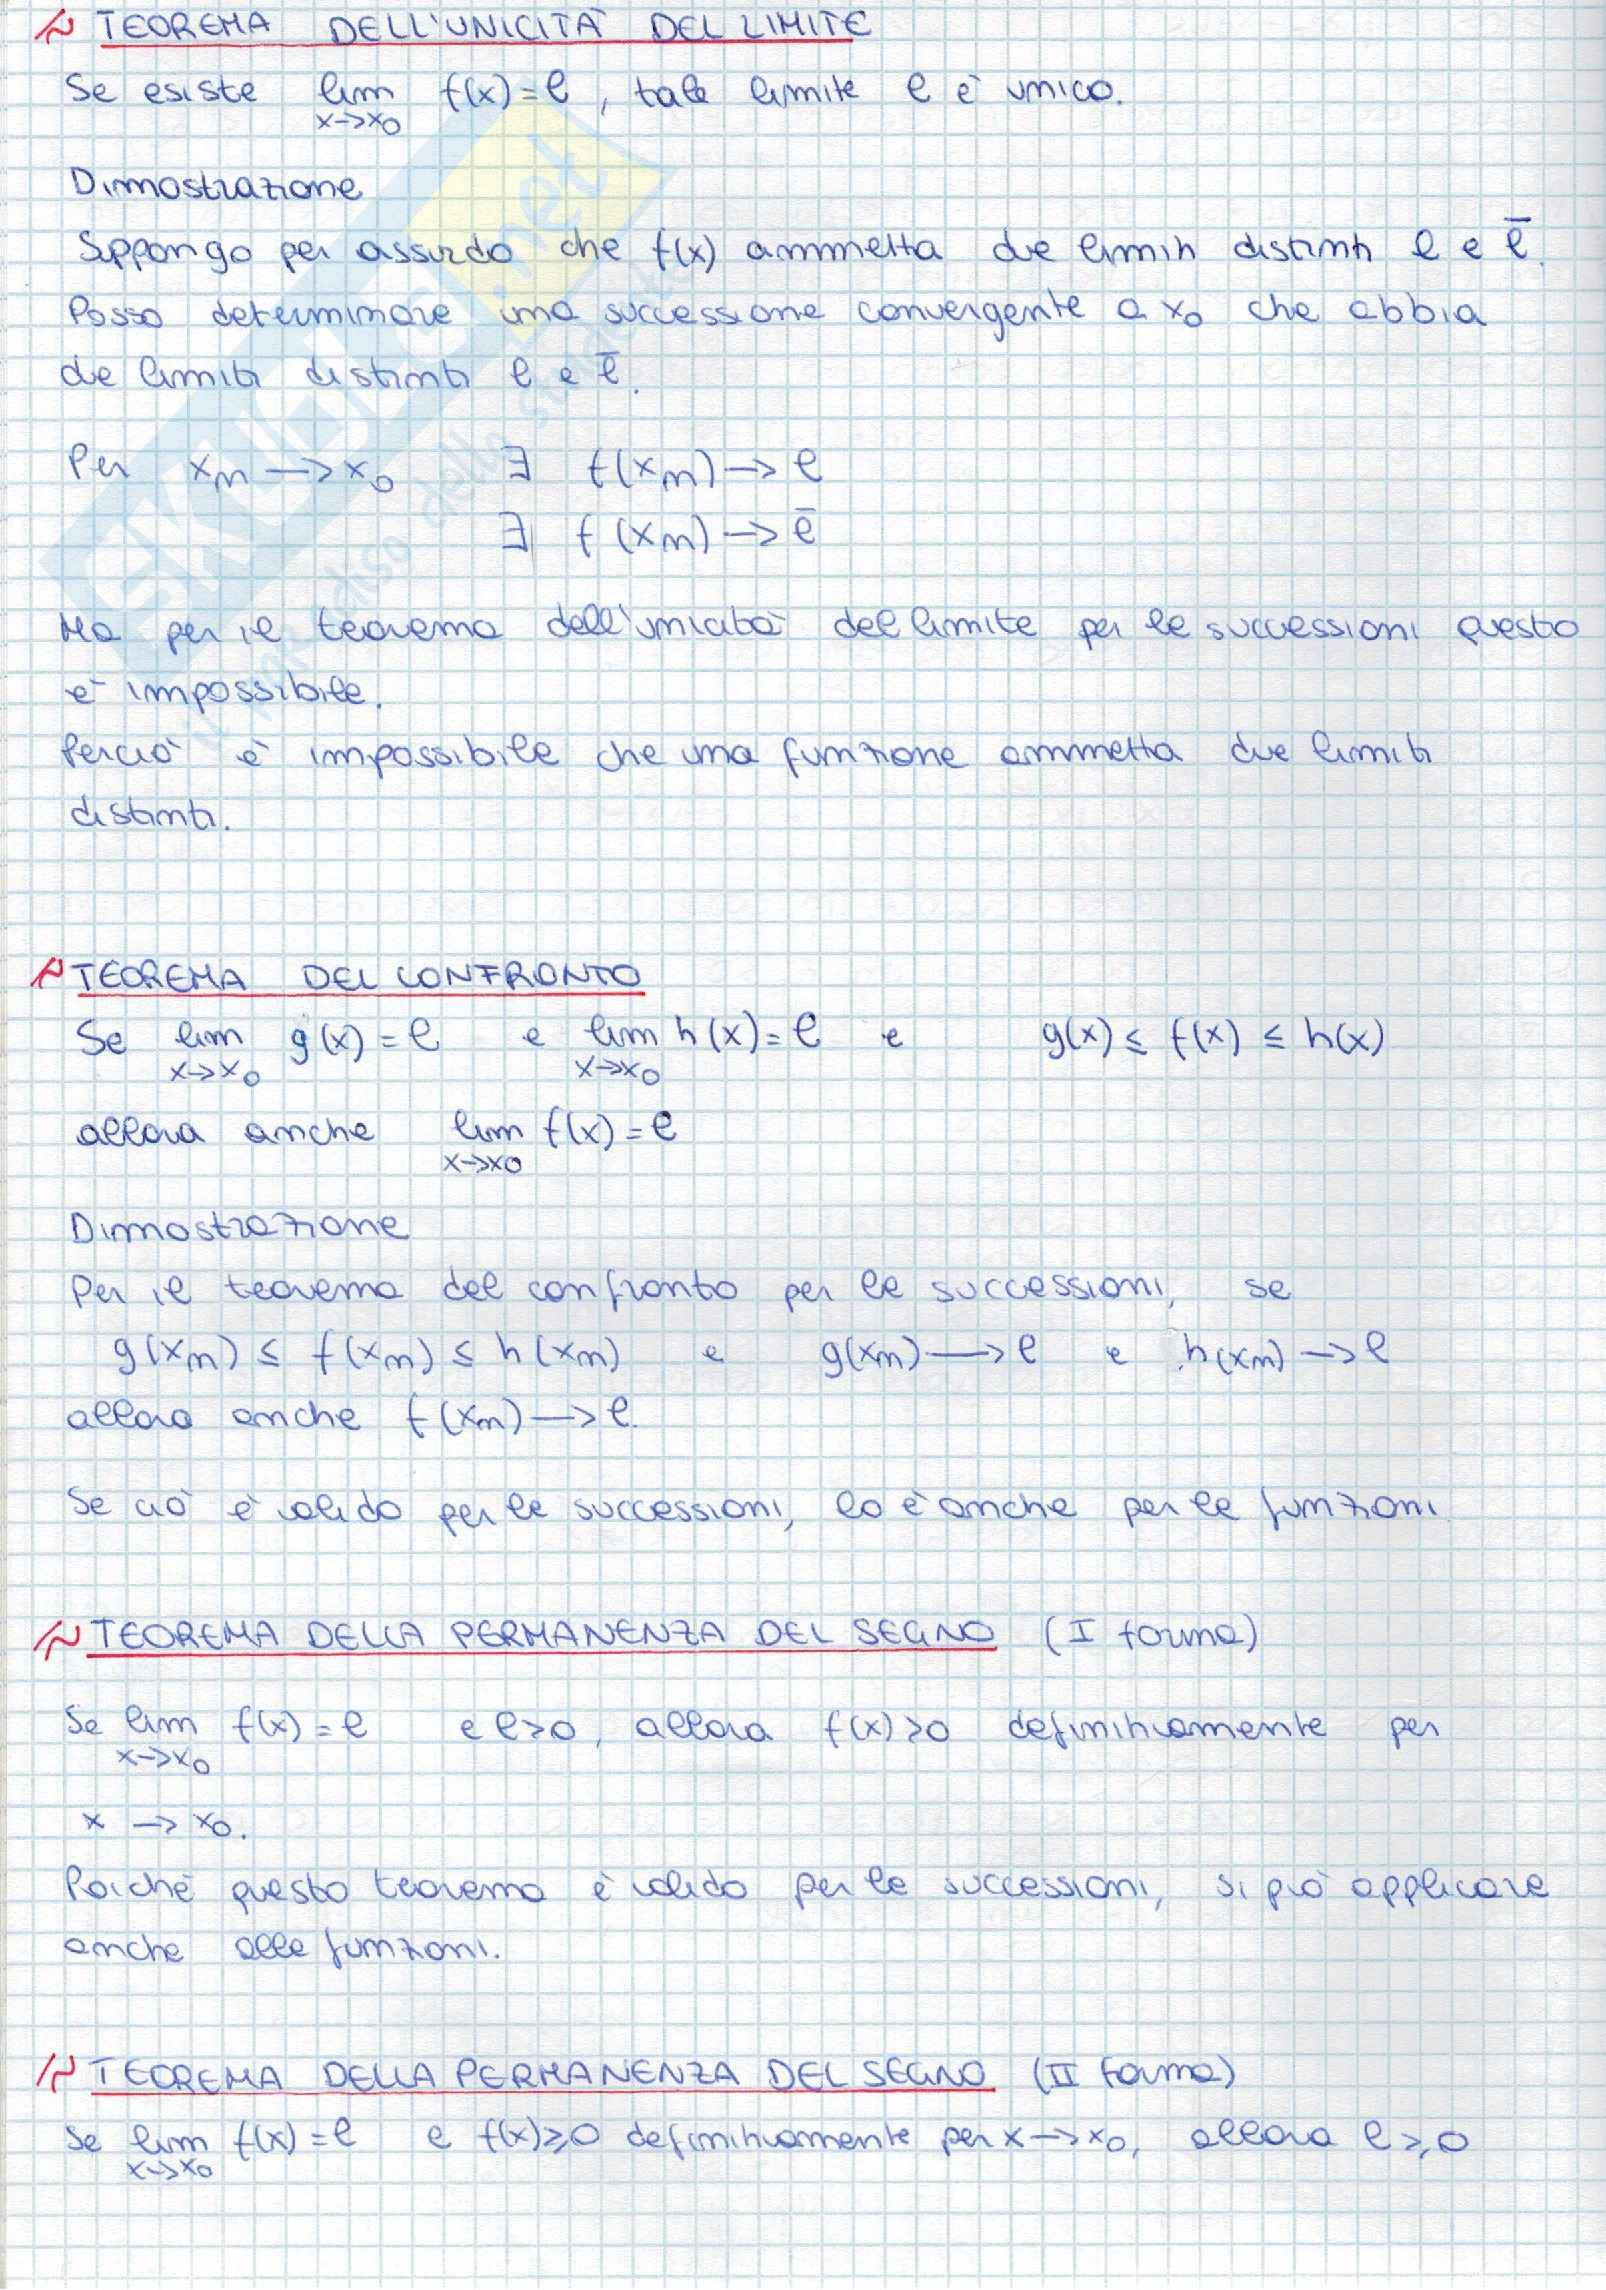 TEOREMA DELL'UNICITÀ DEL LIMITE
Se esiste lim f(x) = l, tale limite l è unico.
x→x₀
Dimostrazione
Suppongo per assurdo che f(x) ammetta due limiti distinti l e l̄.
Posso determinare una successione convergente a x₀ che abbia
due limiti distinti l e l̄.
Per xₙ → x₀ ∃ f(xₙ) → l
∃ f(xₙ) → l̄
Ma per il teorema dell'unicità del limite per le successioni questo
è impossibile.
Perciò è impossibile che una funzione ammetta due limiti
distinti.
TEOREMA DEL CONFRONTO
Se lim g(x) = l e lim h(x) = l e g(x) ≤ f(x) ≤ h(x)
x→x₀ x→x₀
allora anche lim f(x) = l
x→x₀
Dimostrazione
Per il teorema del confronto per le successioni, se
g(xₙ) ≤ f(xₙ) ≤ h(xₙ) e g(xₙ) → l e h(xₙ) → l
allora anche f(xₙ) → l.
Se ciò è valido per le successioni, lo è anche per le funzioni
TEOREMA DELLA PERMANENZA DEL SEGNO (I forma)
Se lim f(x) = l e l>0, allora f(x)>0 definitivamente per
x→x₀
x → x₀.
Poiché questo teorema è valido per le successioni, si può applicare
anche alle funzioni.
TEOREMA DELLA PERMANENZA DEL SEGNO (II forma)
Se lim f(x) = l e f(x)≥0 definitivamente per x→x₀, allora l≥0
x→x₀
SKUOLA.net